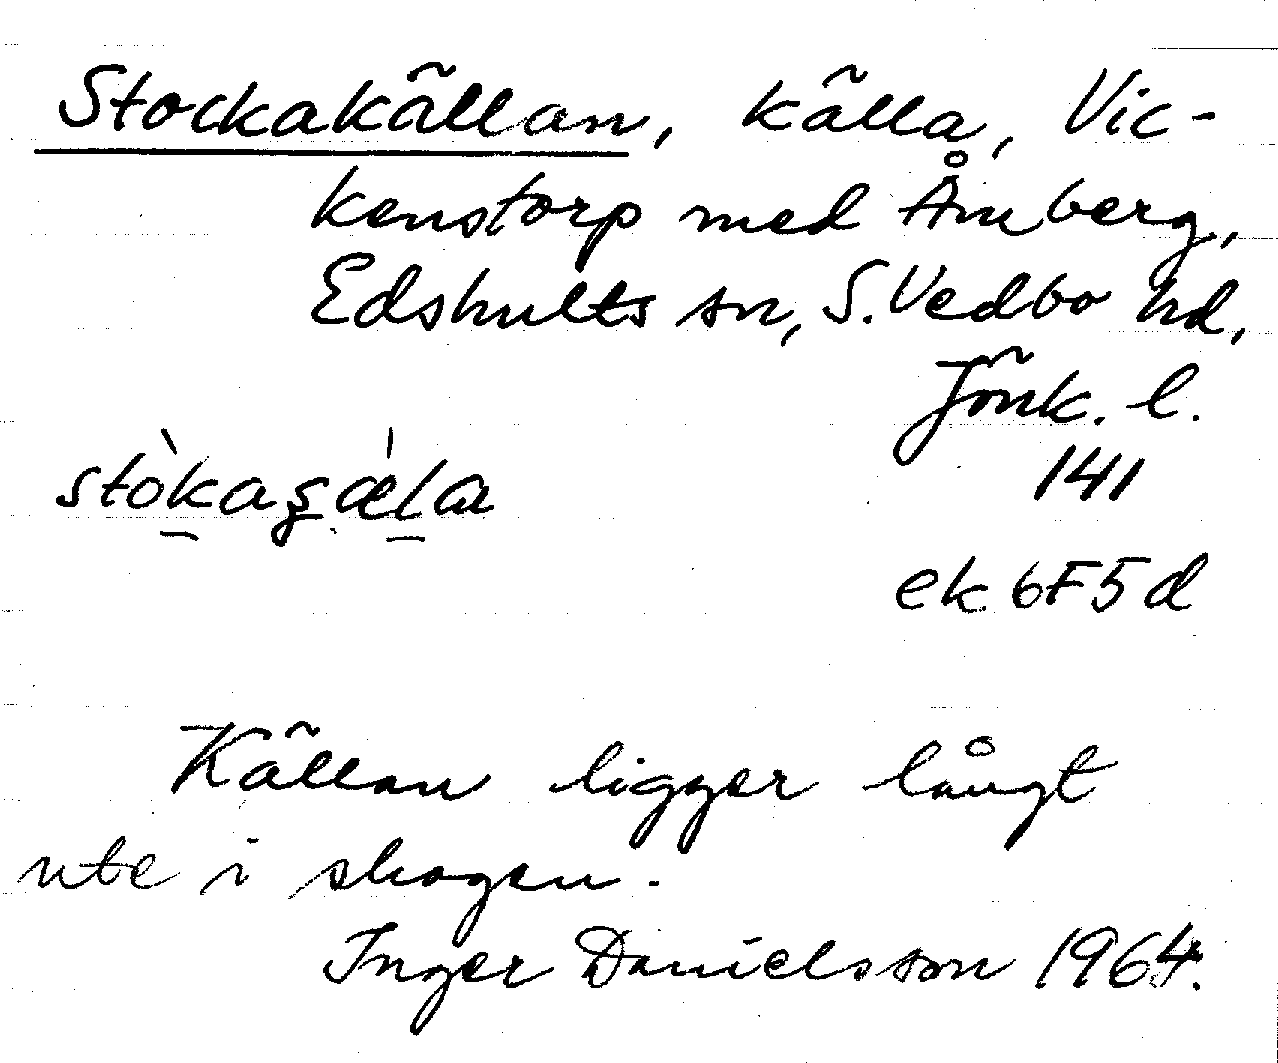 Stockakällan, källa, Vic-
kenstorp med Åmberg,
Edshults sn, S. Vedbo hd,
Jönk. l.
stòkaʂǽla
141
ek 6F5d
Källan ligger långt
ute i skogen.
Inger Danielsson 1964.